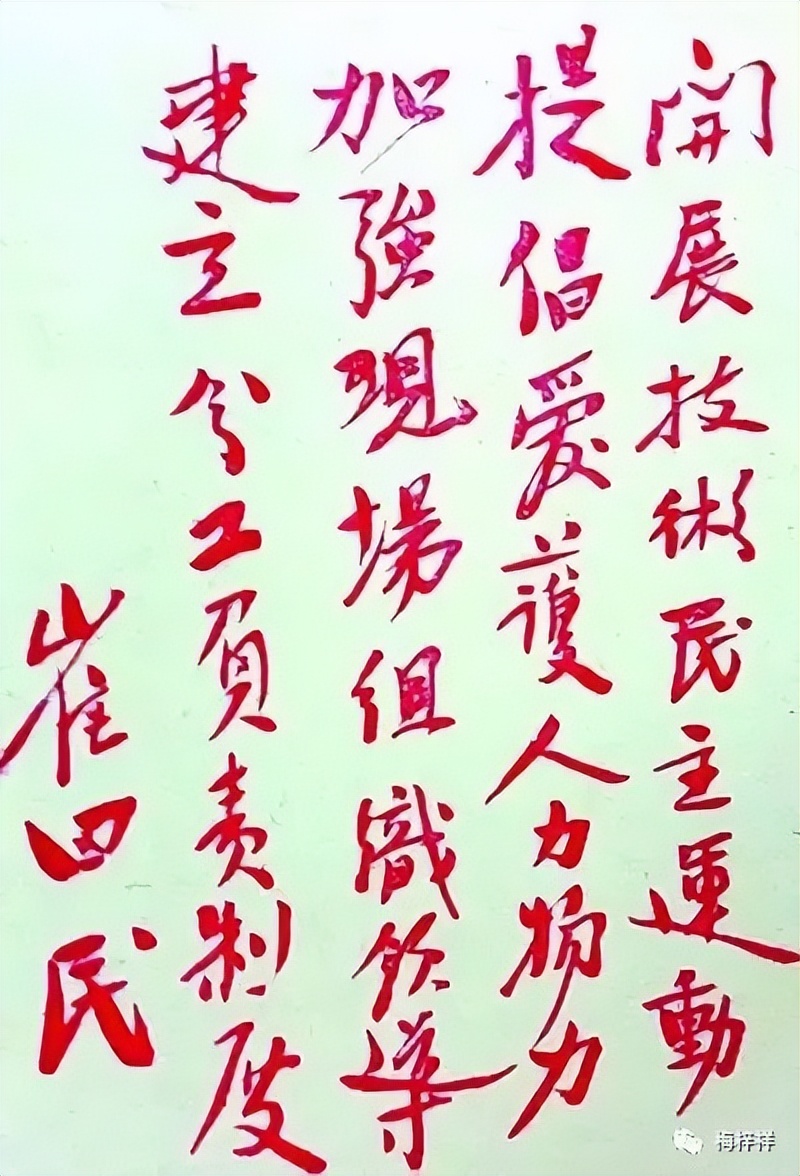 開展技術民主運動
提倡愛護人力物力
加強現場組織領導
建立分工負責制度
崔田民
梅梓祥